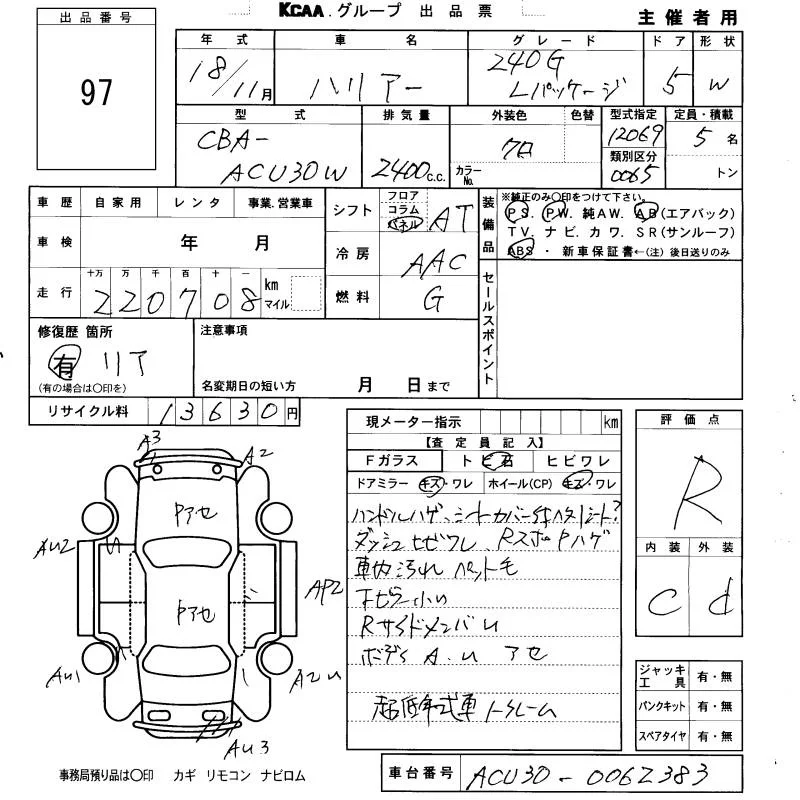 KCAA.グループ 出品票
主催者用
出品番号
97
年式 車名 グレード ドア 形状
18/11月 ハリアー 240G Lパッケージ 5 W
型式 排気量 外装色 色替 型式指定 定員・積載
CBA-ACU30W 2400c.c. クロ 12069 5名
カラーNo. 類別区分 0065 トン
車歴 自家用 レンタ 事業.営業車
車検 年 月
走行 十万 万 千 百 十 一
220708 km マイル
シフト フロア コラム パネル AT
冷房 AAC
燃料 G
装備品
※純正のみ〇印をつけて下さい。
PS. PW. 純AW. AB(エアバック)
TV. ナビ. カワ. SR(サンルーフ)
ABS・新車保証書←(注)後日送りのみ
セールスポイント
修復歴 箇所
有 リア
(有の場合は〇印を)
注意事項
名変期日の短い方 月 日まで
リサイクル料 13630円
現メーター指示 km
【査定員記入】
Fガラス ト ビ石 ヒビワレ
ドアミラー キズ・ワレ ホイール(CP) キズ・ワレ
ハンドルハゲ、シートカバー付
ダッシュヒビワレ
車内汚れ ペット毛
Rサイドメンバ U
ボディ A.U アセ
超低年式車
評価点
R
内装 外装
C d
ジャッキ工具 有・無
パンクキット 有・無
スペアタイヤ 有・無
車台番号 ACU30-0062383
A3
A2
Pアセ
AU2
AP2
Pアセ
AU1
A2U
AU3
事務局預り品は〇印 カギ リモコン ナビロム